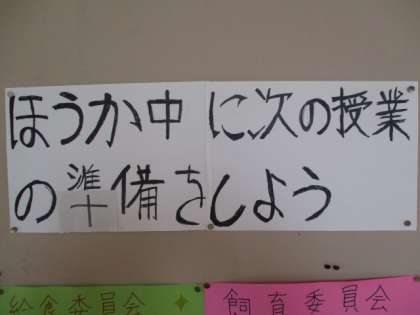 ほうか中に次の授業
の準備をしよう
給食委員会
飼育委員会